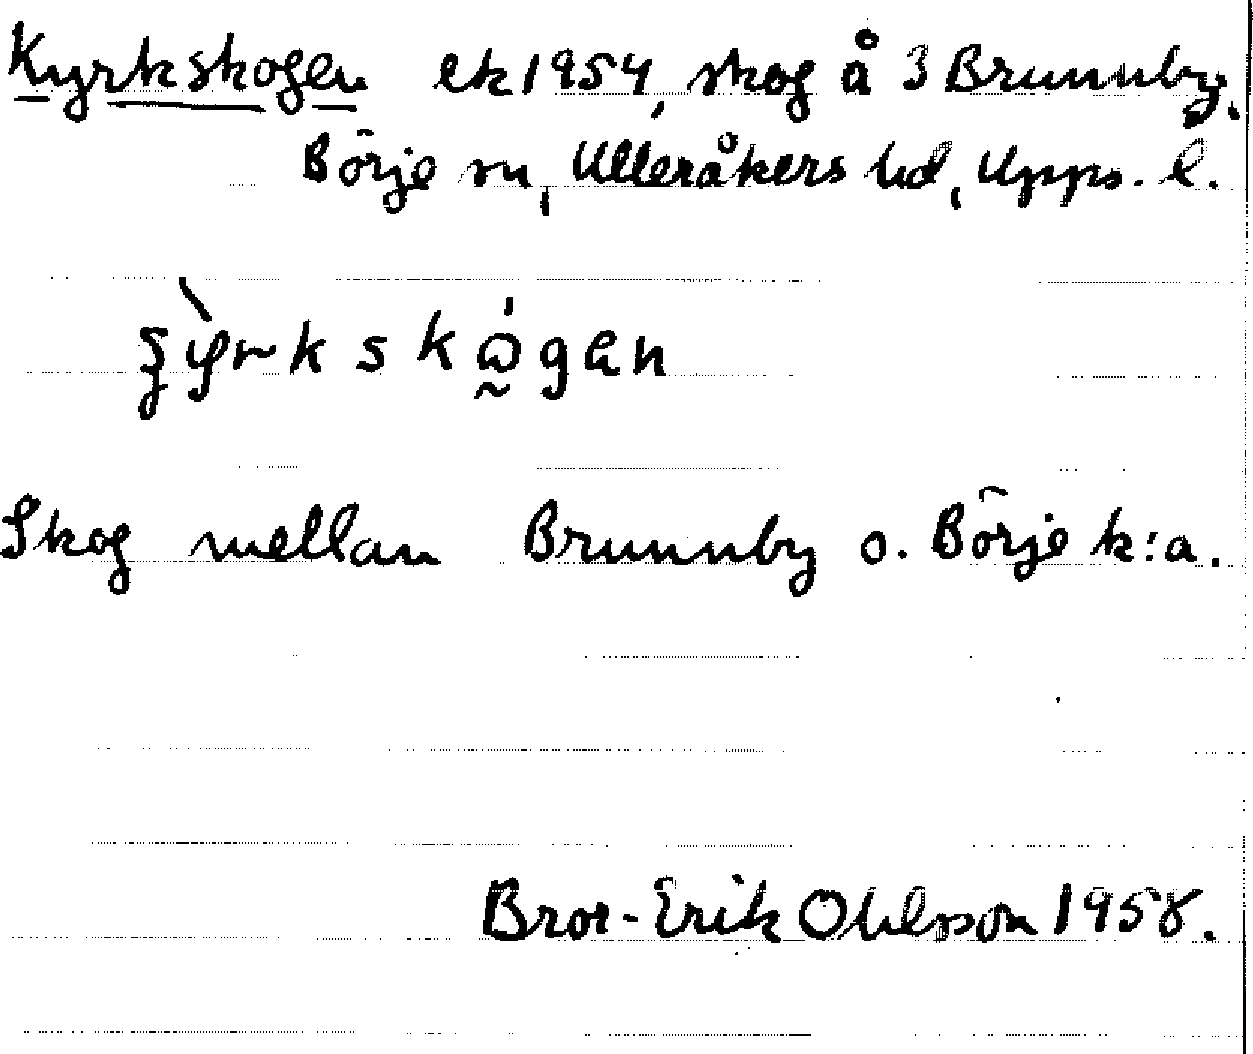 Kyrkskogen ek 1954, skog å 3 Brunnby.
Börje sn, Ulleråkers hd, Upps. l.
Skog mellan Brunnby o. Börje k:a.
Bror-Erik Ohlsson 1958.